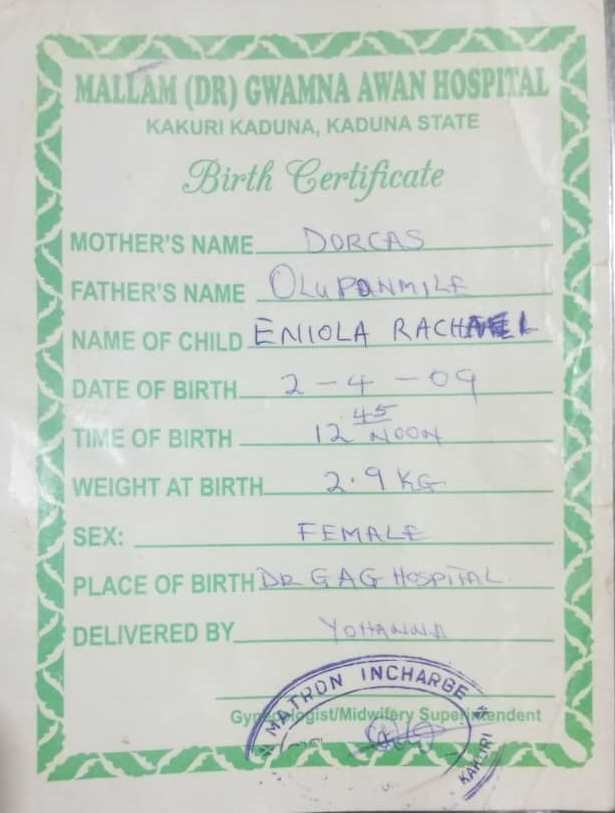 MALLAM (DR) GWAMNA AWAN HOSPITAL
KAKURI KADUNA, KADUNA STATE
Birth Certificate
MOTHER'S NAME DORCAS
FATHER'S NAME OLUPONMILE
NAME OF CHILD ENIOLA RACHAEL
DATE OF BIRTH 2-4-09
TIME OF BIRTH 12 45 NOON
WEIGHT AT BIRTH 2.9 KG
SEX: FEMALE
PLACE OF BIRTH DR GAG HOSPITAL
DELIVERED BY YOHANNA
MATRON INCHARGE
Gynecologist/Midwifery Superintendent
KAKURI